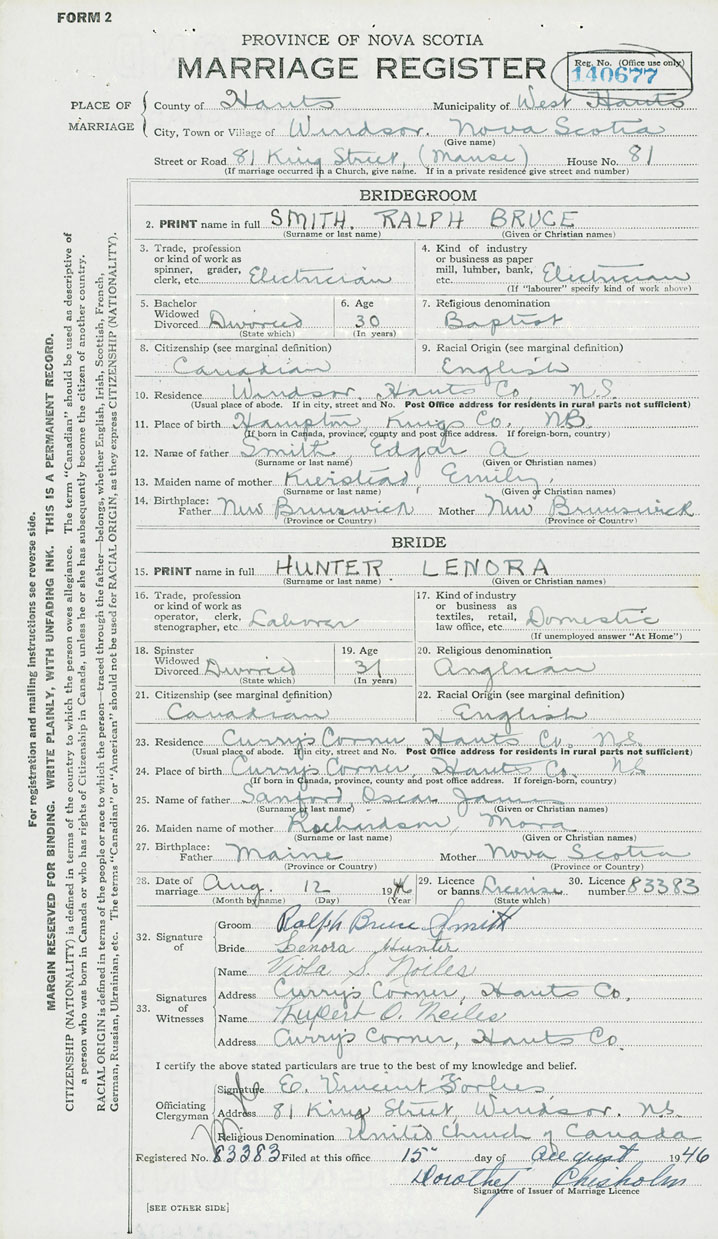 FORM 2
PROVINCE OF NOVA SCOTIA
MARRIAGE REGISTER
Reg. No. (Office use only)
140677
PLACE OF MARRIAGE
County of Hants Municipality of West Hants
City, Town or Village of Windsor, Nova Scotia
(Give name)
Street or Road 81 King Street, (Manse) House No. 81
(If marriage occurred in a Church, give name. If in a private residence give street and number)
BRIDEGROOM
2. PRINT name in full SMITH, RALPH BRUCE
(Surname or last name) (Given or Christian names)
3. Trade, profession or kind of work as spinner, grader, clerk, etc. Electrician
4. Kind of industry or business as paper mill, lumber, bank, etc. Electrician
(If "labourer" specify kind of work above)
5. Bachelor Widowed Divorced Divorced
(State which)
6. Age 30
(In years)
7. Religious denomination
Baptist
8. Citizenship (see marginal definition)
Canadian
9. Racial Origin (see marginal definition)
English
10. Residence Windsor, Hants Co., N.S.
(Usual place of abode. If in city, street and No. Post Office address for residents in rural parts not sufficient)
11. Place of birth Hampton, Kings Co., NB.
(If born in Canada, province, county and post office address. If foreign-born, country)
12. Name of father Smith, Edgar A
(Surname or last name) (Given or Christian names)
13. Maiden name of mother Kierstead Emily,
(Surname or last name) (Given or Christian names)
14. Birthplace: Father New Brunswick Mother New Brunswick
(Province or Country) (Province or Country)
BRIDE
15. PRINT name in full HUNTER LENORA
(Surname or last name) (Given or Christian names)
16. Trade, profession or kind of work as operator, clerk, stenographer, etc Laborer
17. Kind of industry or business as textiles, retail, law office, etc. Domestic
(If unemployed answer "At Home")
18. Spinster Widowed Divorced Divorced
(State which)
19. Age 31
(In years)
20. Religious denomination
Anglican
21. Citizenship (see marginal definition)
Canadian
22. Racial Origin (see marginal definition)
English
23. Residence Curry's Corner Hants Co. N.S.
(Usual place of abode. If in city, street and No. Post Office address for residents in rural parts not sufficient)
24. Place of birth Curry's Corner, Hants Co. NS
(If born in Canada, province, county and post office address. If foreign-born, country)
25. Name of father Sanford, Oscar James
(Surname or last name) (Given or Christian names)
26. Maiden name of mother Richardson, Mora
(Surname or last name) (Given or Christian names)
27. Birthplace: Father Maine Mother Nova Scotia
(Province or Country) (Province or Country)
28. Date of marriage Aug. 12 1946
(Month by name) (Day) (Year)
29. Licence or banns License
(State which)
30. Licence number 83383
32. Signature of
Groom Ralph Bruce Smith
Bride Lenora Hunter
33. Signatures of Witnesses
Name Viola S. Noiles
Address Curry's Corner, Hants Co.
Name O. Noiles
Address Curry's Corner, Hants Co.
I certify the above stated particulars are true to the best of my knowledge and belief.
Officiating Clergyman
Signature E. Vincent Forbes
Address 81 King Street, Windsor. N.S.
Religious Denomination United Church of Canada
Registered No. 83383 Filed at this office 15" day of August 1946
Dorothy Chisholm
Signature of Issuer of Marriage Licence
[SEE OTHER SIDE]
For registration and mailing instructions see reverse side.
MARGIN RESERVED FOR BINDING. WRITE PLAINLY, WITH UNFADING INK. THIS IS A PERMANENT RECORD.
CITIZENSHIP (NATIONALITY) is defined in terms of the country to which the person owes allegiance. The term "Canadian" should be used as descriptive of
a person who was born in Canada or who has rights of Citizenship in Canada, unless he or she has subsequently become the citizen of another country.
RACIAL ORIGIN is defined in terms of the people or race to which the person—traced through the father—belongs, whether English, Irish, Scottish, French,
German, Russian, Ukrainian, etc. The terms "Canadian" or "American" should not be used for RACIAL ORIGIN, as they express CITIZENSHIP (NATIONALITY).